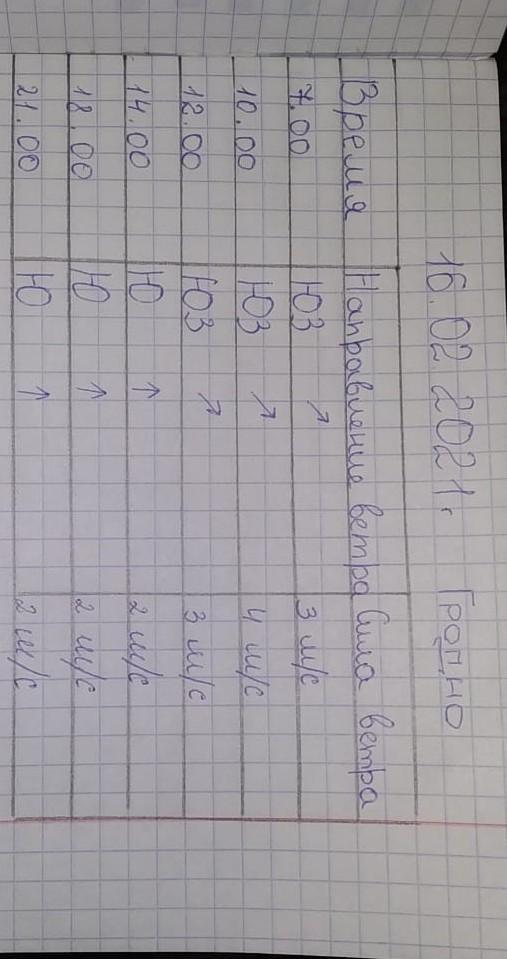 16.02.2021г. Гродно
Время Направление ветра Сила ветра
7.00 ЮЗ ↗ 3 м/с
10.00 ЮЗ ↗ 4 м/с
12.00 ЮЗ ↗ 3 м/с
14.00 Ю ↑ 2 м/с
18.00 Ю ↑ 2 м/с
21.00 Ю ↑ 2 м/с